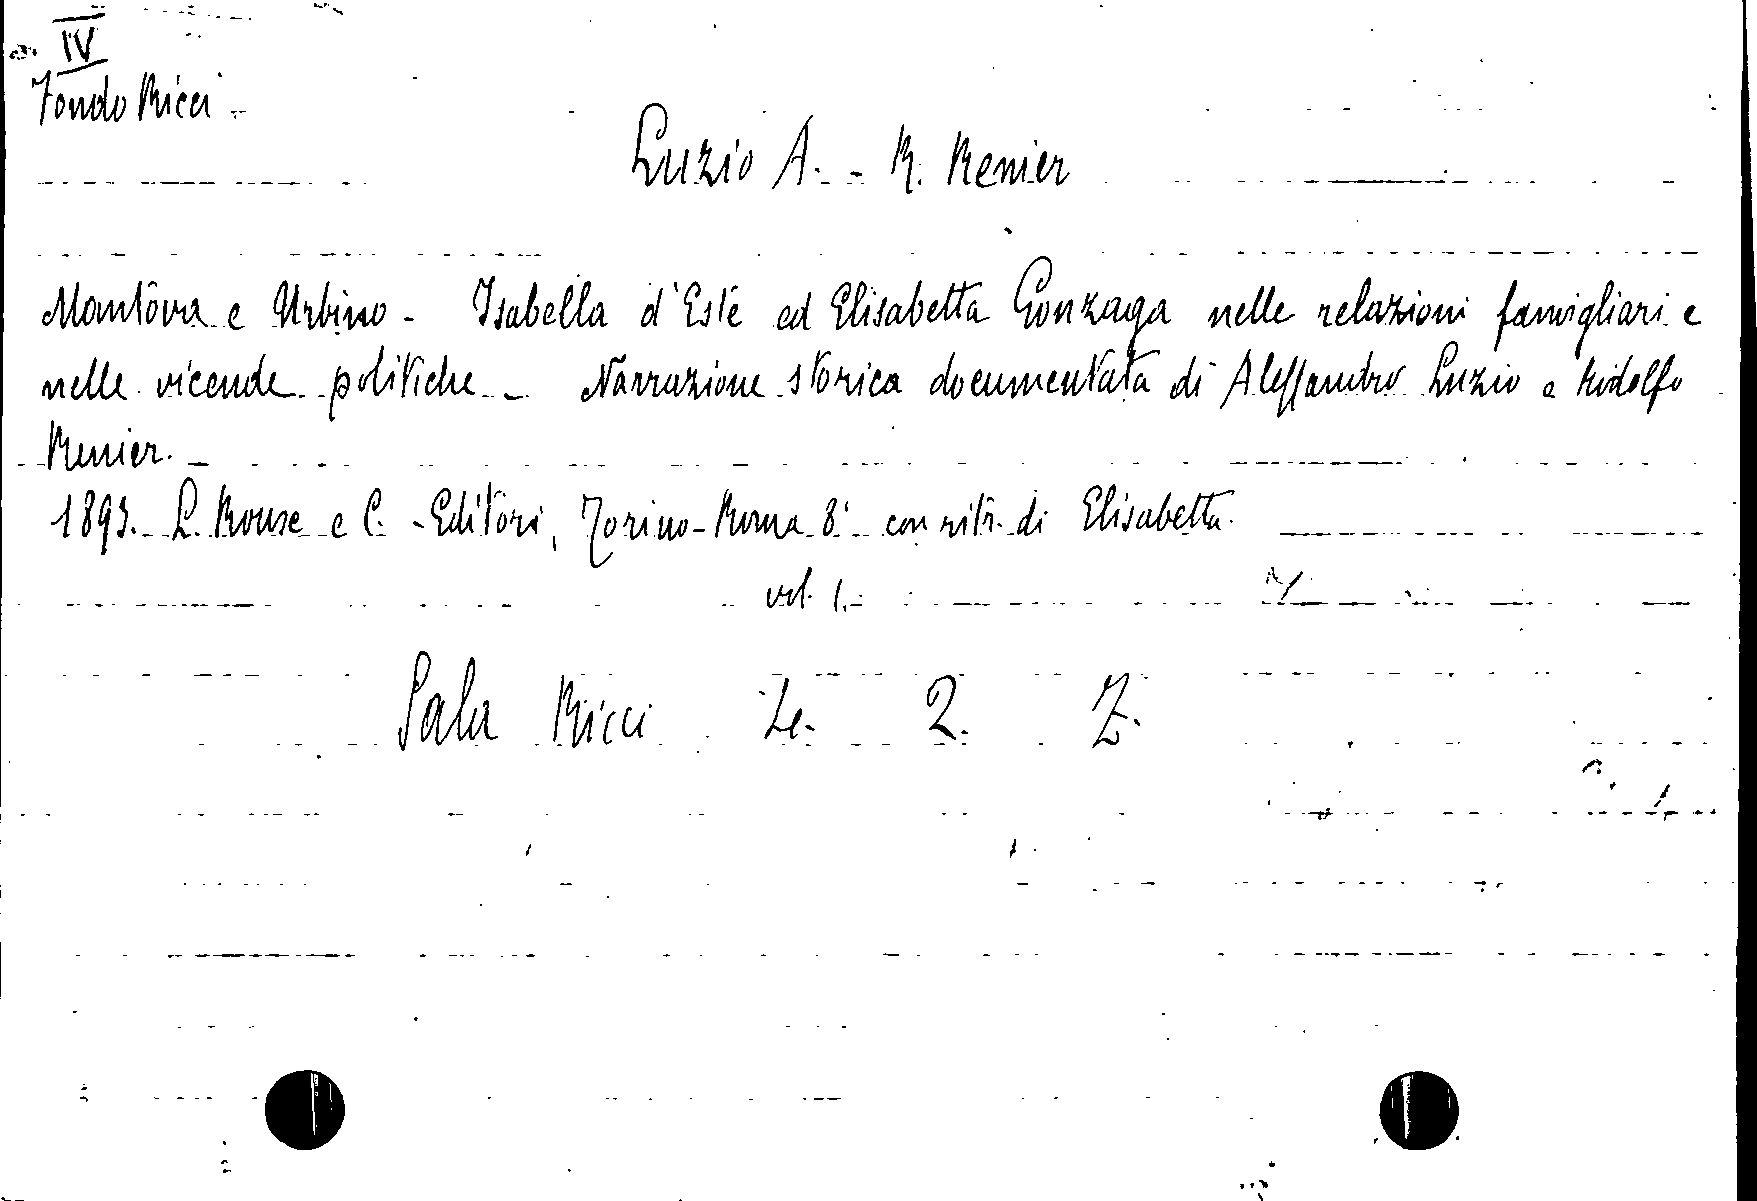 IV
Fondo Ricci -
Luzio A. - R. Renier
Mantova e Urbino - Isabella d'Este ed Elisabetta Gonzaga nelle relazioni famigliari e
nelle vicende politiche - Narrazione storica documentata di Alessandro Luzio e Rodolfo
Renier. -
1893. L. Rouxe e C. - Editori, Torino-Roma 8° con ritr. di Elisabetta.
vol. 1.
Sala Ricci Le. 2. Z.